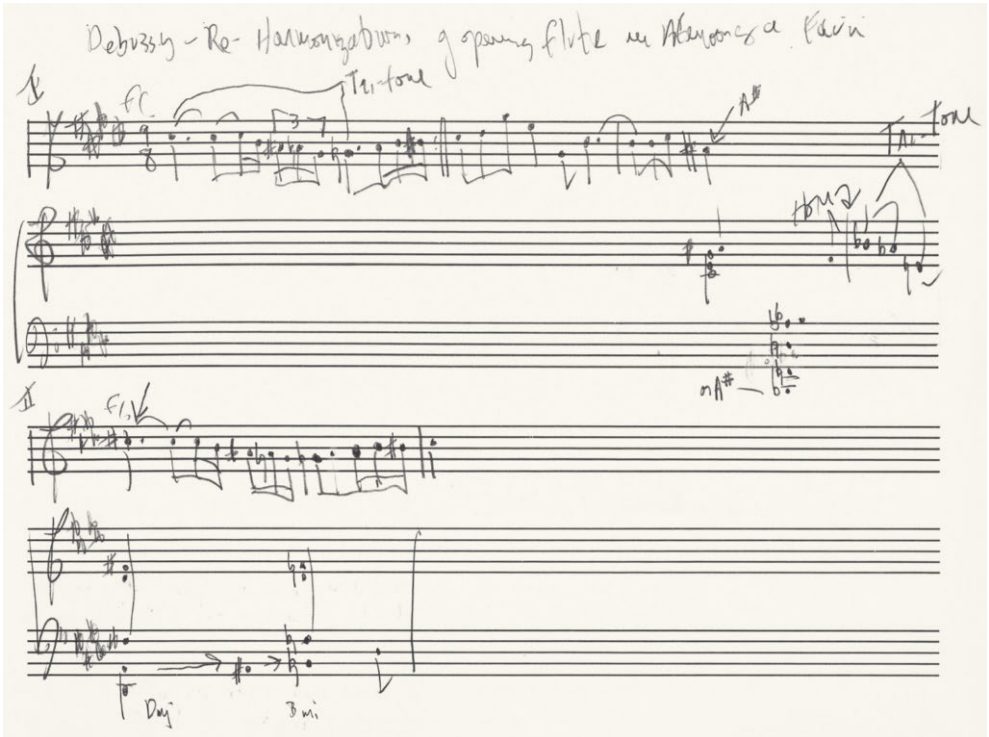 Debussy - Re-Harmonizations of opening flute in Afternoon of a Faun
I
Fl.
Tri-tone
9
8
3
A#
Tri-tone
on A#
II
Fl.
Dmj
Bmi